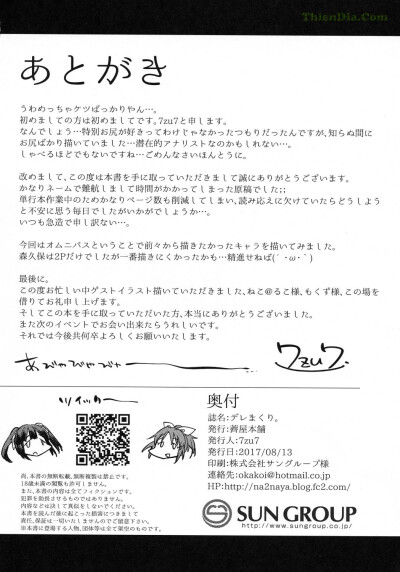 ThienDia.Com
あとがき
うわめっちゃケツばっかりやん…。
初めましての方は初めましてです。7zu7と申します。
なんでしょう…特別お尻が好きってわけじゃなかったつもりだったんですが、知らぬ間に
お尻ばかり描いていました…潜在的アナリストなのかもしれない…。
しゃべるほどでもないですね…ごめんなさいほんとうに。
改めまして、この度は本書を手に取っていただきまして誠にありがとうございます。
かなりネームで難航しまして時間がかかってしまった原稿でした;;
単行本作業中のためかなりページ数も削減してしまい、読み応えに欠けていたらどうしよう
と不安に思う毎日でしたがいかがでしょうか…。
いつも急造で申し訳ない…。
今回はオムニバスということで前々から描きたかったキャラを描いてみました。
森久保は2Pだけでしたが一番描きにくかったかも…精進せねば(｀・ω・´)
最後に。
この度お忙しい中ゲストイラスト描いていただきました、ねこ@るこ様、もくず様、この場を
借りてお礼申し上げます。
そしてこの本を手に取っていただいた方、本当にありがとうございました。
また次のイベントでお会い出来たらうれしいです。
それでは今後共何卒よろしくお願いいたします。
あびゃびゃびゃー
7zu7.
ツイッター
奥付
誌名:デレまくり。
発行:茜屋本舗
発行人:7zu7
発行日:2017/08/13
印刷:株式会社サングループ様
連絡先:okakoi@hotmail.co.jp
HP:http://na2naya.blog.fc2.com/
尚、本書の無断転載、無断複製は禁止です。
18歳未満の閲覧も許可しません。
また、本書の内容は全てフィクションです。
犯罪を助長させるものではありません。
内容などは決して真似をしないでください。
本書を読んだ後に起こった損害につきまして
責任、保証は一切いたしませんのでご留意下さい。
※本書に登場する人物、団体等は全て架空のものです。
SUN GROUP
http://www.sungroup.co.jp/